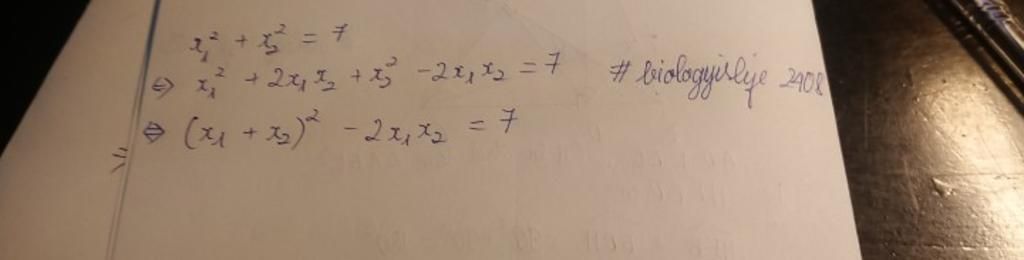 x₁² + x₂² = 7
⇔ x₁² + 2x₁x₂ + x₂² - 2x₁x₂ = 7 # biologyislije 2408
⇔ (x₁ + x₂)² - 2x₁x₂ = 7
⇒